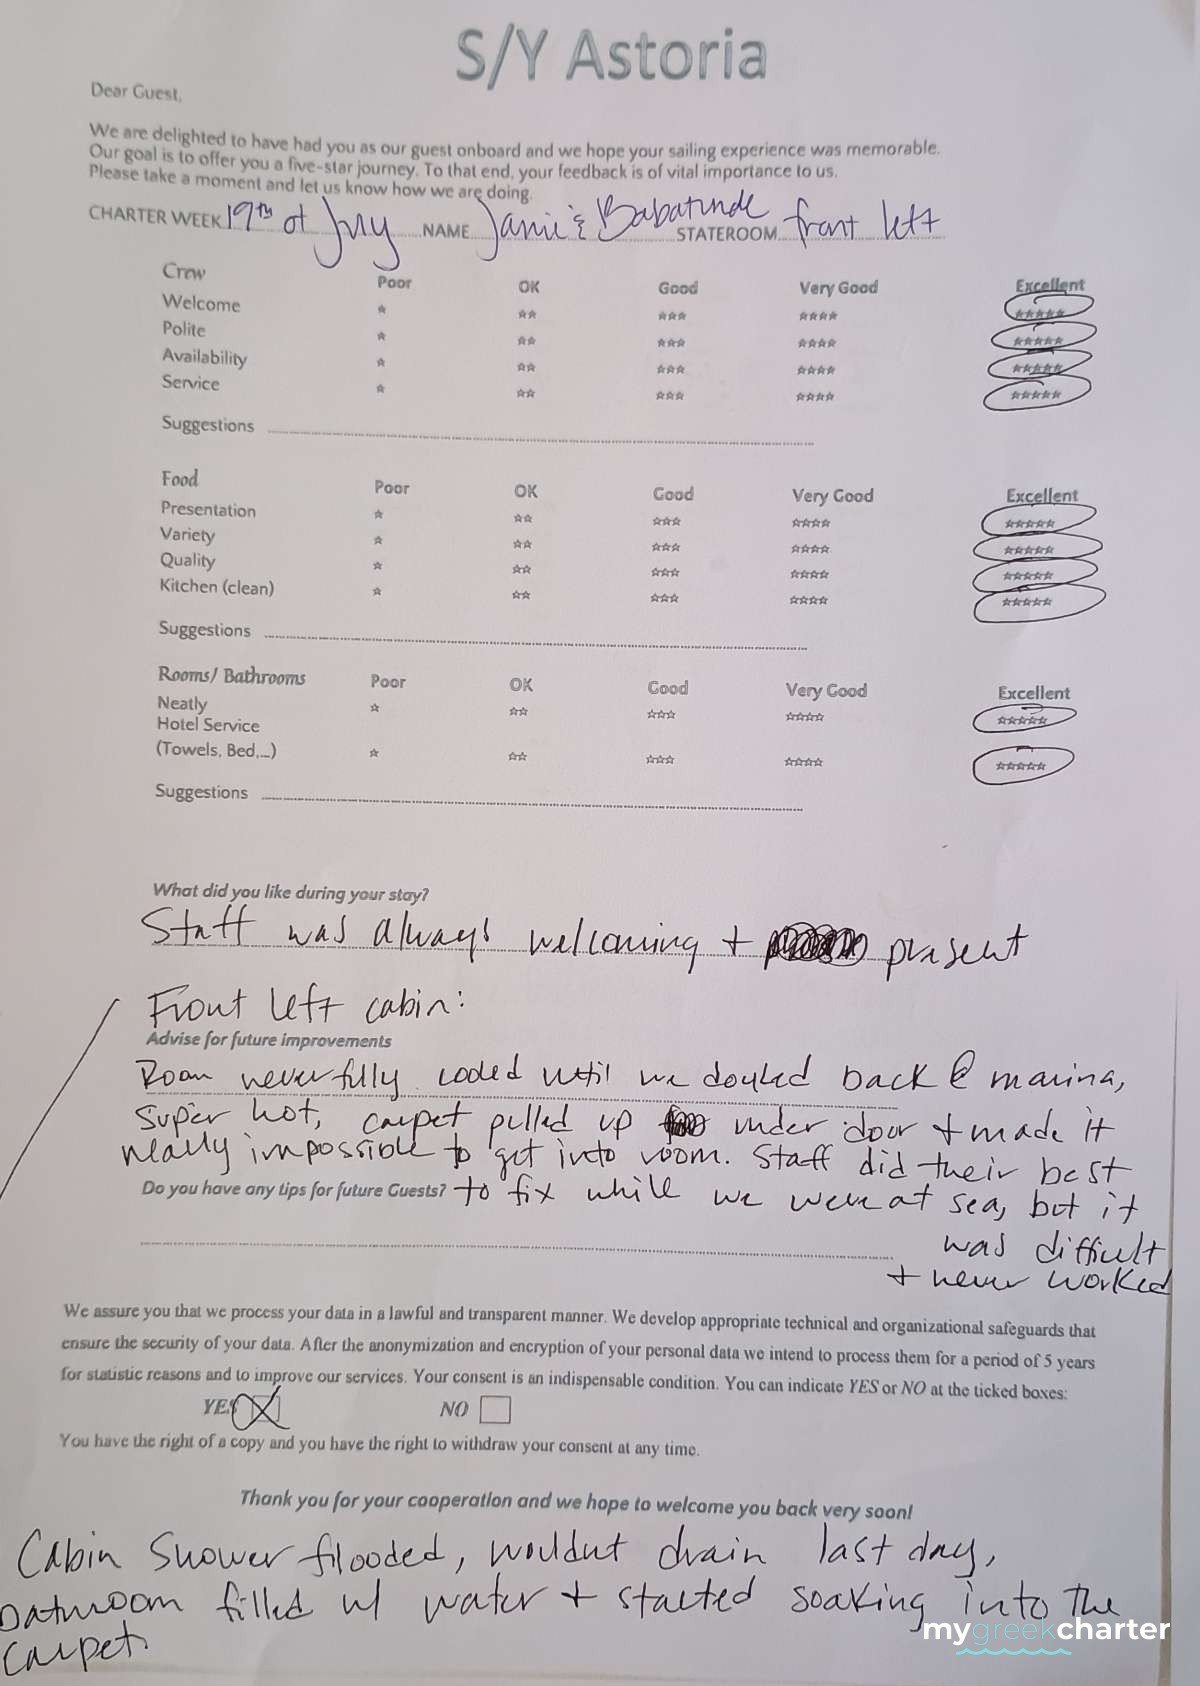 S/Y Astoria
Dear Guest,
We are delighted to have had you as our guest onboard and we hope your sailing experience was memorable.
Our goal is to offer you a five-star journey. To that end, your feedback is of vital importance to us.
Please take a moment and let us know how we are doing.
CHARTER WEEK 19th of July NAME Jamie & Babatunde STATEROOM front left
Crew Poor OK Good Very Good Excellent
Welcome ☆ ☆☆ ☆☆☆ ☆☆☆☆ ☆☆☆☆☆
Polite ☆ ☆☆ ☆☆☆ ☆☆☆☆ ☆☆☆☆☆
Availability ☆ ☆☆ ☆☆☆ ☆☆☆☆ ☆☆☆☆☆
Service ☆ ☆☆ ☆☆☆ ☆☆☆☆ ☆☆☆☆☆
Suggestions
Food Poor OK Good Very Good Excellent
Presentation ☆ ☆☆ ☆☆☆ ☆☆☆☆ ☆☆☆☆☆
Variety ☆ ☆☆ ☆☆☆ ☆☆☆☆ ☆☆☆☆☆
Quality ☆ ☆☆ ☆☆☆ ☆☆☆☆ ☆☆☆☆☆
Kitchen (clean) ☆ ☆☆ ☆☆☆ ☆☆☆☆ ☆☆☆☆☆
Suggestions
Rooms/ Bathrooms Poor OK Good Very Good Excellent
Neatly ☆ ☆☆ ☆☆☆ ☆☆☆☆ ☆☆☆☆☆
Hotel Service
(Towels, Bed,...) ☆ ☆☆ ☆☆☆ ☆☆☆☆ ☆☆☆☆☆
Suggestions
What did you like during your stay?
Staff was always welcoming + present
Front left cabin:
Advise for future improvements
Room never fully cooled until we docked back @ marina,
super hot, carpet pulled up under door + made it
nearly impossible to get into room. Staff did their best
Do you have any tips for future Guests? to fix while we were at sea, but it
was difficult
+ never worked
We assure you that we process your data in a lawful and transparent manner. We develop appropriate technical and organizational safeguards that
ensure the security of your data. After the anonymization and encryption of your personal data we intend to process them for a period of 5 years
for statistic reasons and to improve our services. Your consent is an indispensable condition. You can indicate YES or NO at the ticked boxes:
YES NO
You have the right of a copy and you have the right to withdraw your consent at any time.
Thank you for your cooperation and we hope to welcome you back very soon!
Cabin shower flooded, wouldnt drain last day,
bathroom filled w/ water + started soaking into the
carpet.
mygreekcharter